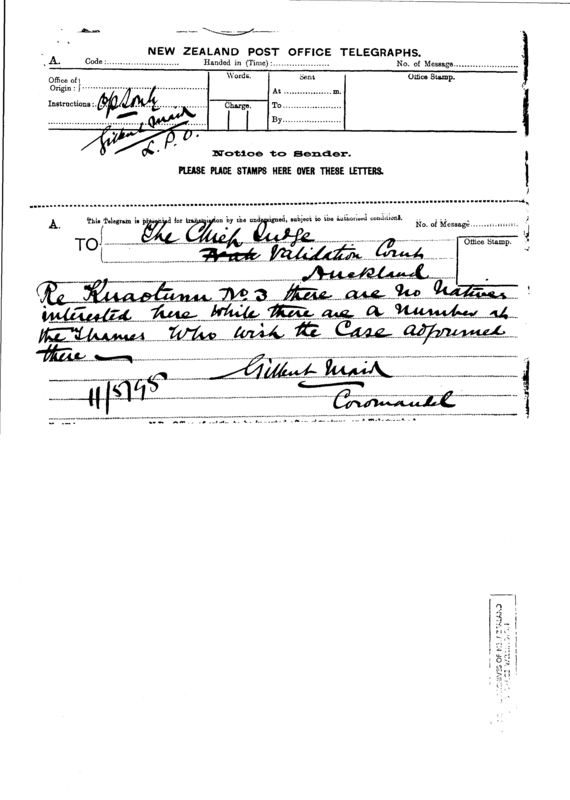 NEW ZEALAND POST OFFICE TELEGRAPHS.
A. Code: Handed in (Time): No. of Message
Office of Origin:
Words. Sent Office Stamp.
At m.
Instructions: Charge. To
By
Gilbert Mair
L.P.O.
Notice to Sender.
PLEASE PLACE STAMPS HERE OVER THESE LETTERS.
This Telegram is presented for transmission by the undersigned, subject to the authorised conditions.
A. No. of Message
TO The Chief Judge Office Stamp.
Validation Court
Auckland
Re Kuaotunu No 3 there are no Natives
interested here while there are a number at
the Thames who wish the Case adjourned
there
Gilbert Mair
11/5/98 Coromandel
ARCHIVES OF NEW ZEALAND